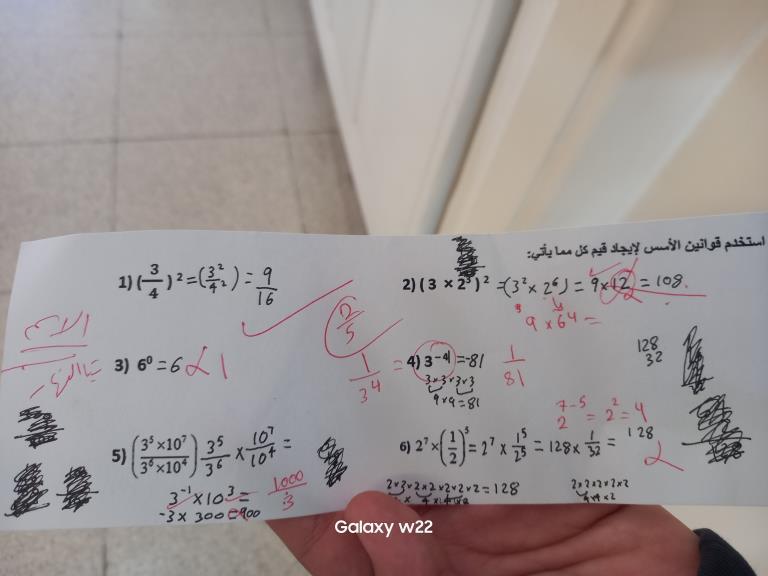 استخدم قوانين الأسس لإيجاد قيم كل مما يأتي:
1) (3/4)² = (3²/4²) = 9/16
2) (3 × 2³)² = (3² × 2⁶) = 9 × 12 = 108
9 × 64 =
2/5
3) 6⁰ = 6 1
1/3⁴ = 4) 3⁻⁴ = -81 1/81
3 × 3 × 3 × 3
9 × 9 = 81
128
32
5) (3⁵ × 10⁷ / 3⁶ × 10⁴) 3⁵/3⁶ × 10⁷/10⁴ =
3⁻¹ × 10³ = 1000/3
-3 × 300 = 900
2⁷⁻⁵ = 2² = 4
6) 2⁷ × (1/2)⁵ = 2⁷ × 1⁵/2⁵ = 128 × 1/32 = 128
= 128
2 × 2 × 2 × 2 × 2
4 × 4 × 2
Galaxy w22